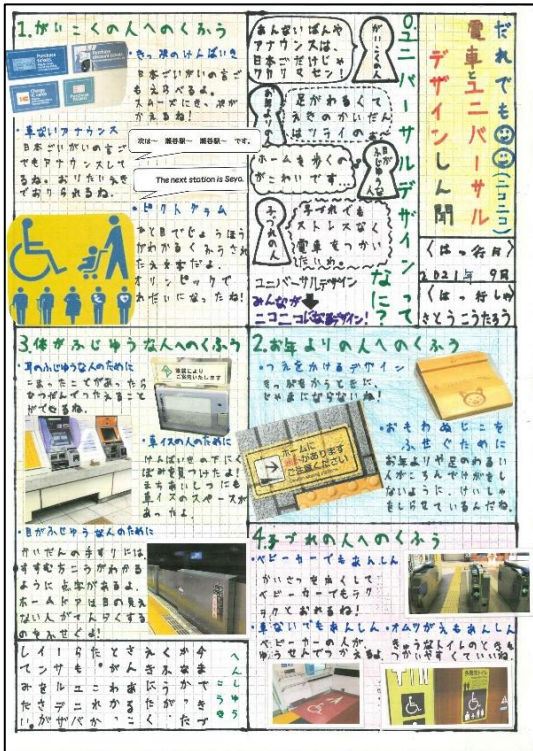 だれでも(ニコニコ)
電車とユニバーサル
デザインしん聞
〈はっ行月〉
2021年 9月
〈はっ行しゃ〉
さとうこうたろう
0.ユニバーサルデザインってなに?
がいこくの人
あんないばんや
アナウンスは、
日本ごだけじゃ
ワカリマセン
お年よりの人
足がわるくて
えきのかいだん
はツライのぉ〜
目がふじゆうな人
ホームを歩くの
がこわいです…
子づれの人
子づれでも
ストレスなく
電車をつかい
たいわ。
ユニバーサルデザイン
みんなが
ニコニコになるデザイン!
1.がいこくの人へのくふう
・きっぷのけんばいき
日本ごいがいの言ご
もえらべるよ。
スムーズにきっぷが
かえるね!
・車ないアナウンス
日本ごいがいの言ご
でもアナウンスして
るね。おりたいえき
でおりられるね。
次は〜 瀬谷駅〜 瀬谷駅〜 です。
The next station is Seya.
・ピクトグラム
ひと目でじょうほう
がわかるくふうされ
たえ文字だよ。
オリンピックで
わだいになったね!
2.お年よりの人へのくふう
・つえをかけるデザイン
きっぷをかうときに、
じゃまにならないね!
・おもわぬじこを
ふせぐために
お年よりや足のわるい
人がころんでけがをし
ないように、けいしゃ
をしらせているんだね。
ホームに
傾斜があります
ご注意ください
3.体がふじゆうな人へのくふう
・耳のふじゆうな人のために
こまったことがあったら
ひつだんでつたえること
ができるね。
筆談により
ご案内いたします
・車イスの人のために
けんばいきの下にく
ぼみを見つけたよ!
まちあいしつにも
車イスのスペースが
あったよ。
・目がふじゆうな人のために
かいだんの手すりには、
すすむ方こうがわかる
ように点字があるよ。
ホームドアは目の見え
ない人がてんらくする
のをふせぐよ!
4.子づれの人へのくふう
・ベビーカーでもあんしん
かいさつを広くして、
ベビーカーでもラク
ラクとおれるね!
・車ないでもあんしん
ベビーカーの人が
ゆうせんでつかえるよ。
・オムツがえもあんしん
きゅうなトイレのときも
つかいやすくていいね。
へんしゅうこうき